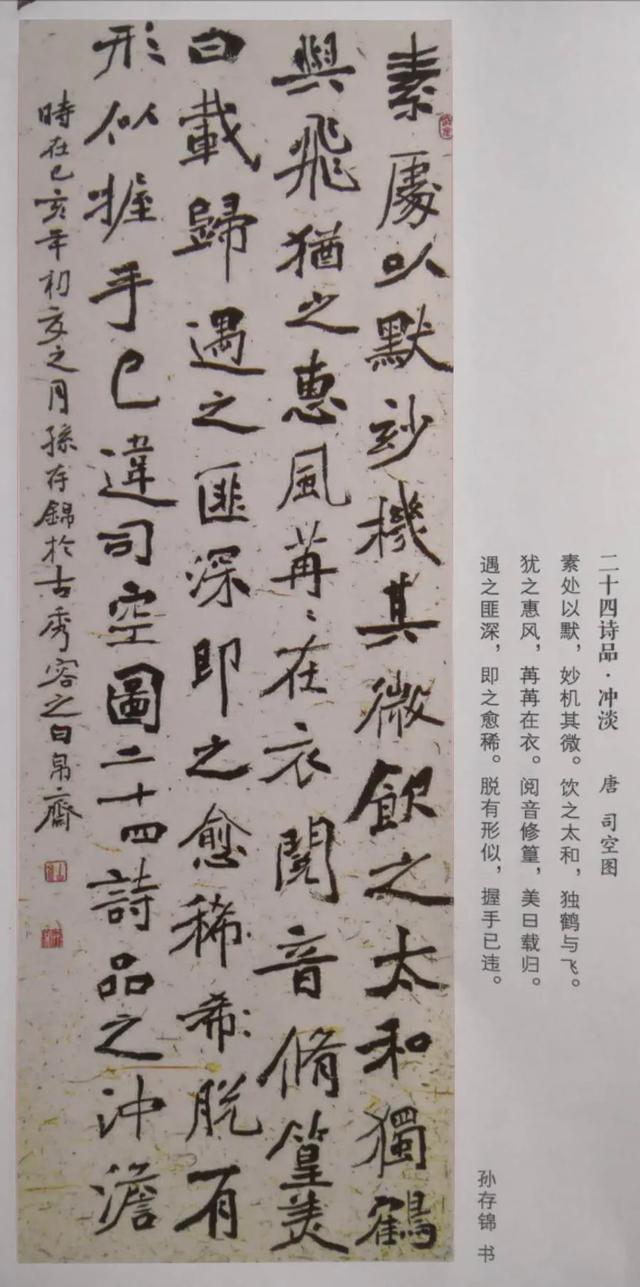 二十四诗品·冲淡 唐 司空图
素处以默，妙机其微。饮之太和，独鹤与飞。
犹之惠风，苒苒在衣。阅音修篁，美曰载归。
遇之匪深，即之愈稀。脱有形似，握手已违。
孙存锦 书
素處以默玅機其微飲之太和獨鶴
與飛猶之惠風苒〻在衣閱音脩篁美
曰載歸遇之匪深即之愈稀希脱有
形似握手已違司空圖二十四詩品之沖澹
時在己亥年初亥之月孫存錦於古秀容之白帛齋